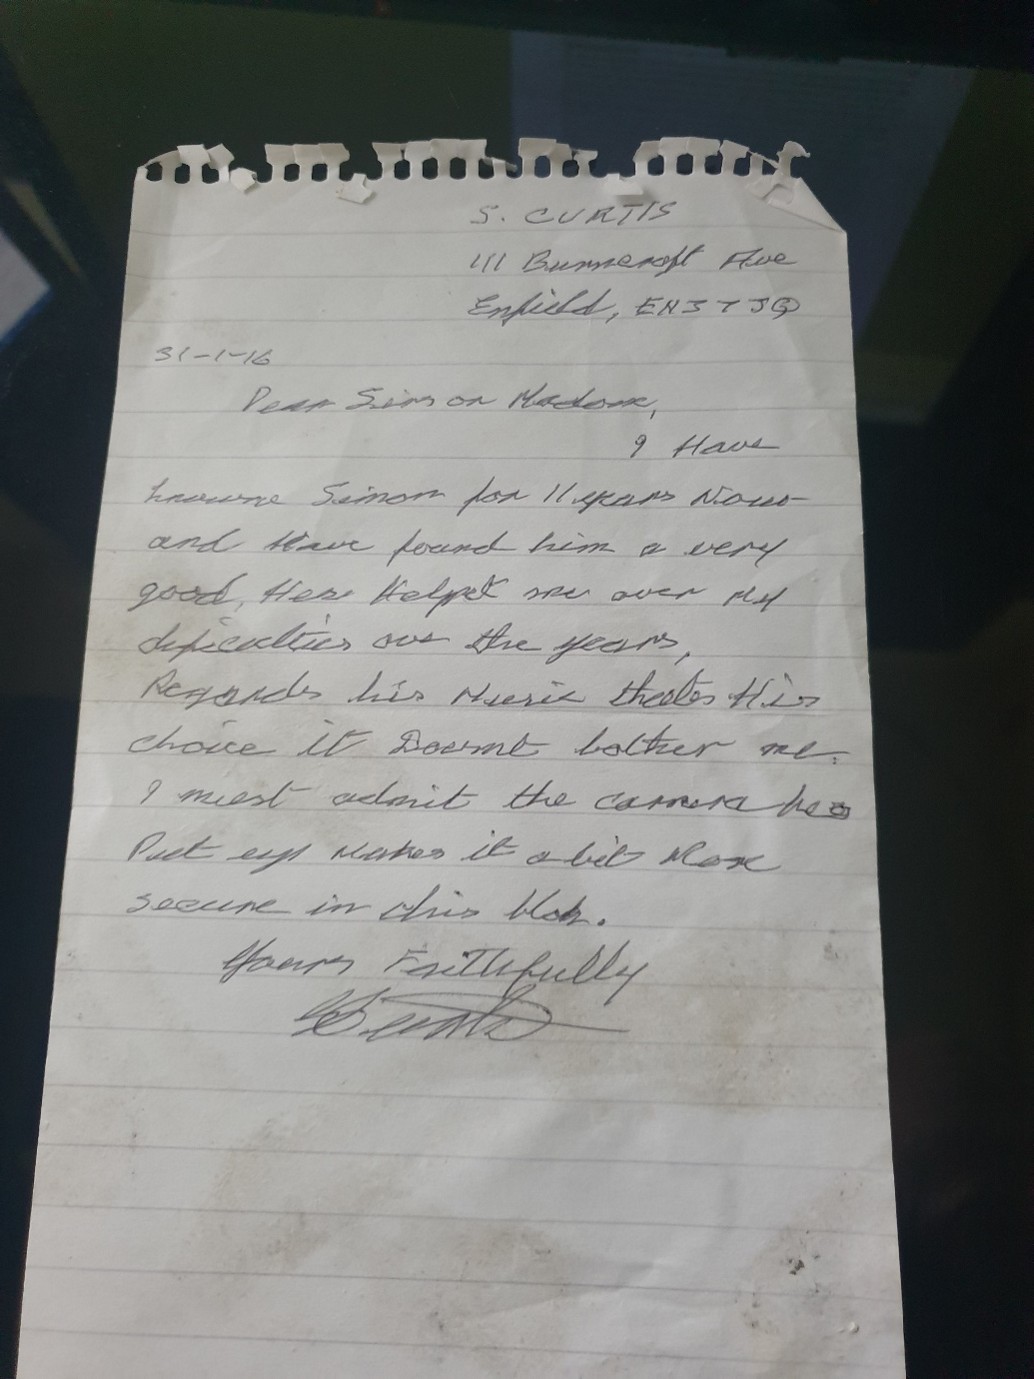 S. CURTIS
111 Burncroft Ave
Enfield, EN3 7JQ
31-1-16
Dear Sirs or Madame,
I Have
knowne Simon for 11 years Now
and Have found him a very
good, Hes Helpt me over My
dificulties over the years,
Regards his Music thats His
choice it Doesnt bother me.
I must admit the camera hes
Put up Makes it a bit More
secure in this blok.
Yours Faithfully
S. Curtis